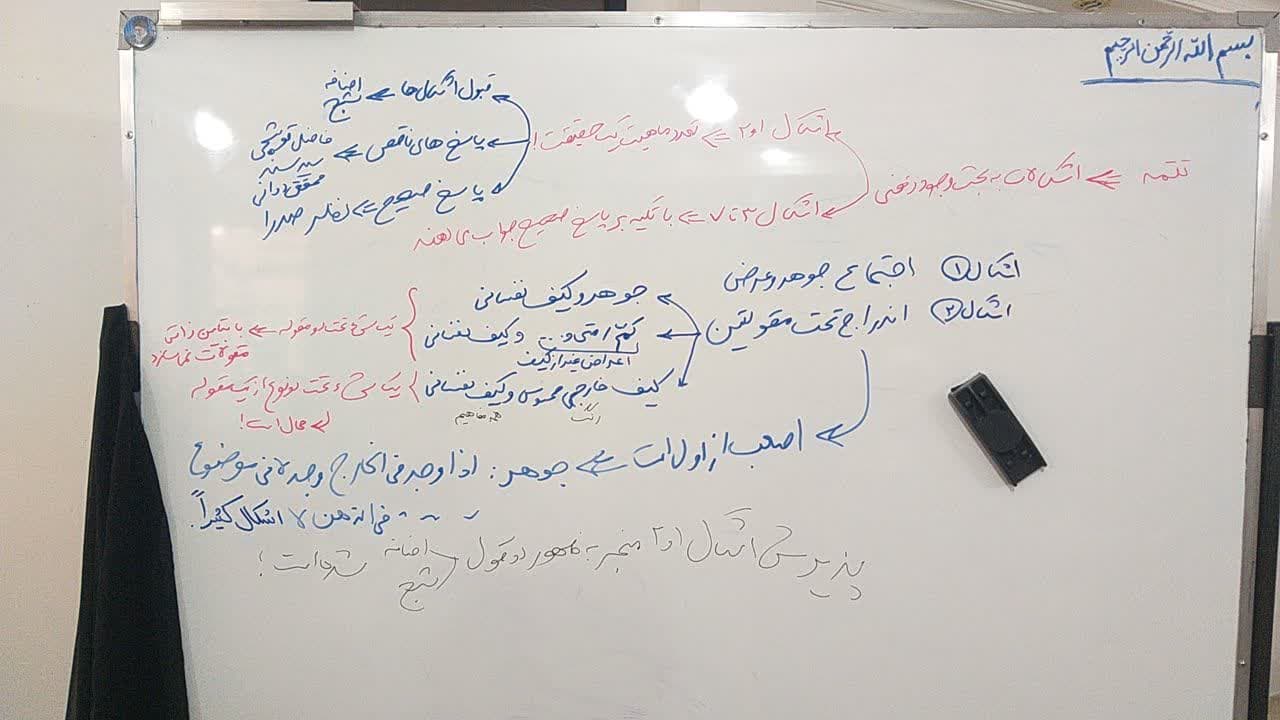 بسم الله الرحمن الرحیم
تتمه ⇐ اشکالات به بحث وجود ذهنی
اشکال ۱ و ۲ ⇐ تعدد ماهیت یک حقیقت!
قبول اشکال‌ها ⇐ اضافه
شبح
پاسخ های ناقص ⇐ فاضل قوشچی
سید سند
محقق دوانی
پاسخ صحیح ⇐ نظر صدرا
اشکال ۳ تا ۷ ⇐ با تکیه بر پاسخ صحیح جواب می دهند
اشکال ① اجتماع جوهر و عرض
اشکال ② اندراج تحت مقولتین
جوهر و کیف نفسانی
کمّ، متی و ... و کیف نفسانی
اعراض غیر از کیف
یک شیء تحت دو مقوله ⇐ با تباین ذاتی
مقولات نمی سازد
کیف خارجی محسوس و کیف نفسانی
همه مفاهیم
یک شیء تحت دو نوع از یک مقوله
محال است!
اصعب از اول است ⇐ جوهر: اذا وجد فی الخارج وجد لا فی موضوع
فی الذهن لا اشکال کثیراً.
پذیرش اشکال ۱ و ۲ منجر به ظهور دو قول اضافه
شبح
شده است!